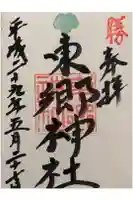 勝
奉拝
東郷神社
平成二十九年五月二十